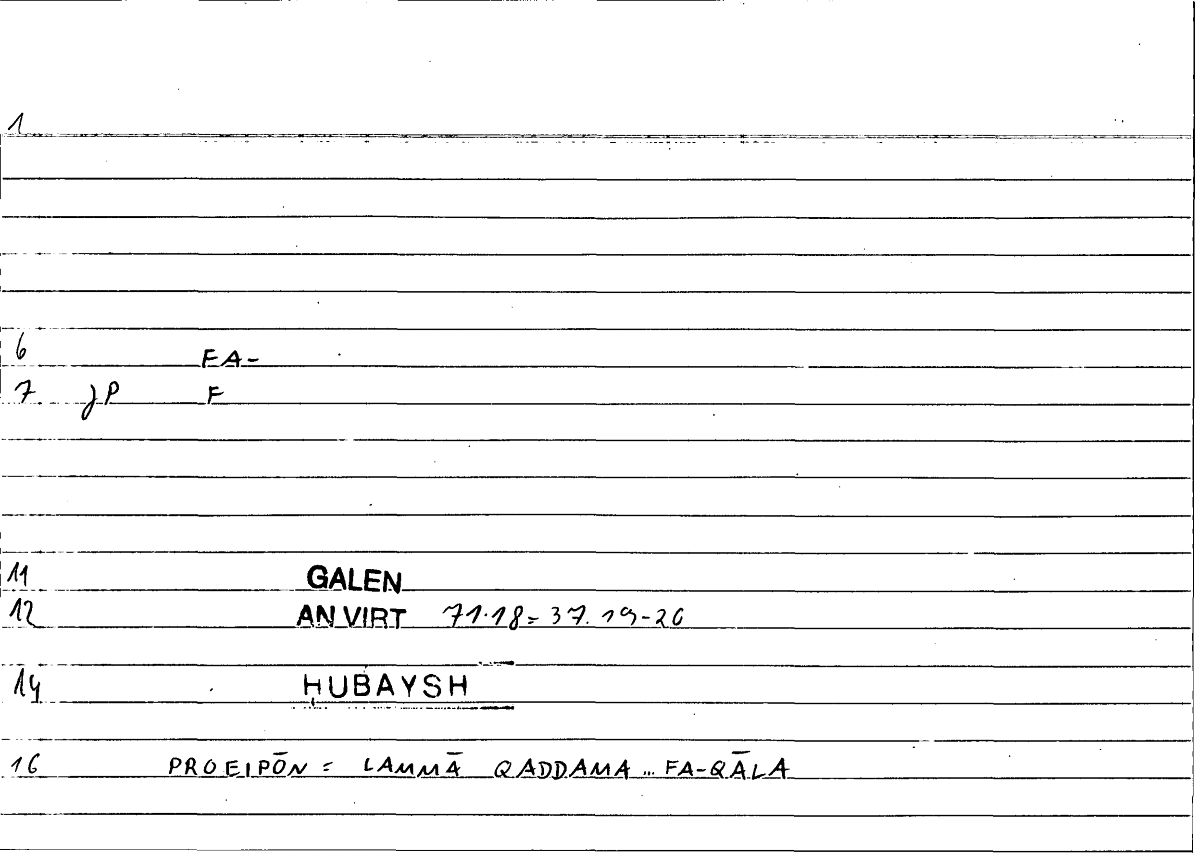 1
6 FA-
7 JP F
11 GALEN
12 AN VIRT 71.18 = 37.19-20
14 ḤUBAYSH
16 PROEIPŌN = LAMMĀ QADDAMA ... FA-QĀLA